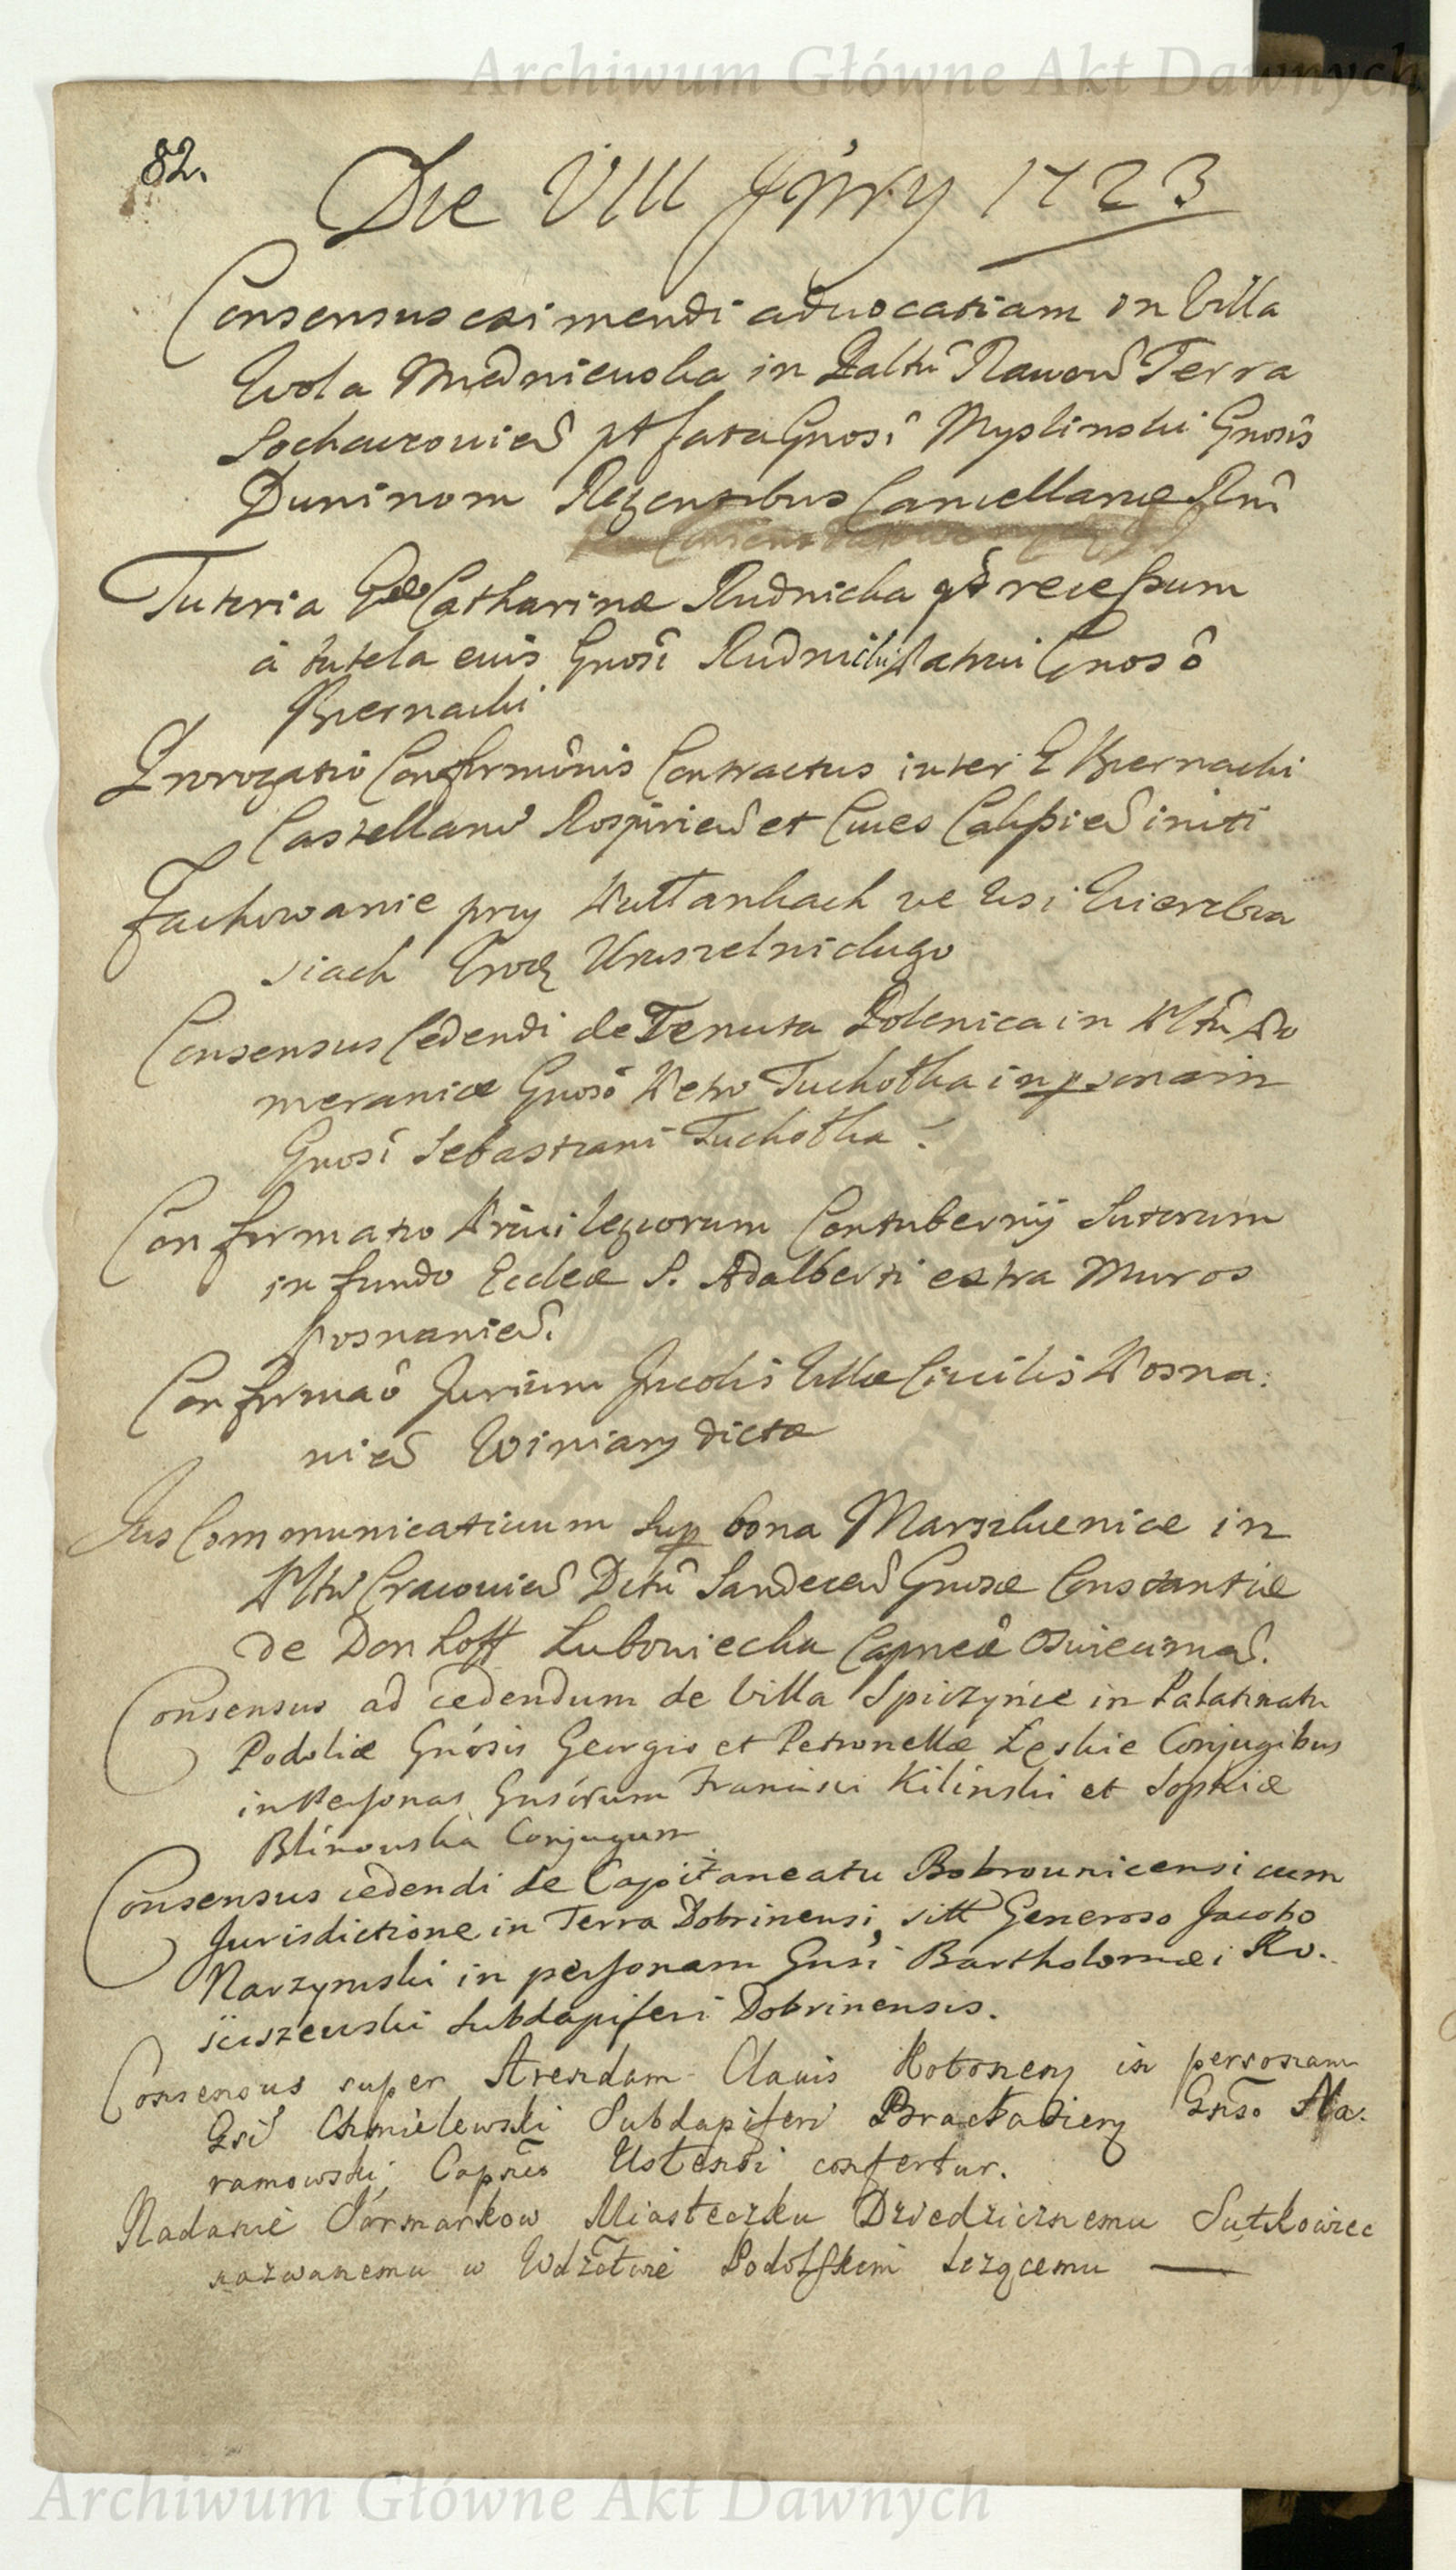 Archiwum Główne Akt Dawnych
82.
Die VIII 1723
Consensus eximendi advocatiam in Villa
Wola Miedniewska in Paltû Rawen̂ Terra
Sochaczovien̂ Gnosî Myslinski Gnosîs
Duninom Regentibus Cancellariæ Rnî
Tutoria Catharinæ Rudnicka recessum
à tutela eius Gnosî Rudnicki Patrui Gnosô
Biernacki
Prorogatio Contractus inter G Biernacki
Castellanû Rospirien̂ et Cives initi
Zachowanie przy ve Wsi Wierzba
siach Kruszelnickiego
Consensus Cedendi de Tenuta Polenica in Pltû Po
meraniæ Gnosô Petro Tuchołka in personam
Gnosî Sebastiani Tuchołka.
Confirmatio Privilegiorum Contubernij Sutorum
in fundo Eccleæ S. Adalberti extra Muros
Posnanien̂.
Confirmaô Jurium Incolis Villæ Civilis Posna:
nien̂ Winiary dictæ
Jus Communicativum sup bona Marszkienice in
Pltû Cracovien̂ Sandecen̂ Gnosæ Constantiæ
de Donhoff Luboniecka Capneæ Oswiecimen̂.
Consensus ad cedendum de Villa Spiczyńce in Palatinatu
Podoliæ Gnósis Georgio et Petronellæ Łeskie Conjugibus
in Personas Gnsórum Francisci Kilínski et Sophiæ
Blínowska Conjugum
Consensus cedendi de Capitaneatu Bobrownicensi cum
Jurisdictione in Terra Dobrinensi, sitt Generoso Jacobo
Narzymski in personam Gnsi Bartholomæi Ro.
sciszewski Subdapiferi Dobrinensis.
Consensus super Arendam Clavis in personam
Chmielewski Subdapiferi Gnso Ma.
ramowski confertur.
Nadanie Jarmarkow Miasteczku Dziedzicznemu Sutkowiec
nazwanemu w Wdztwie Podolskim lezącemu —
Archiwum Główne Akt Dawnych